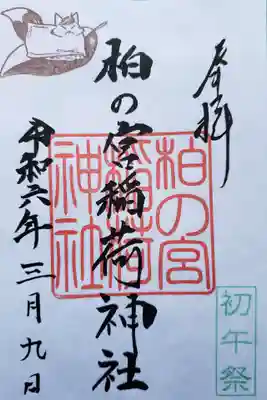 奉拝
柏の宮稲荷神社
令和六年三月九日
柏の宮
稲荷
神社
初午祭